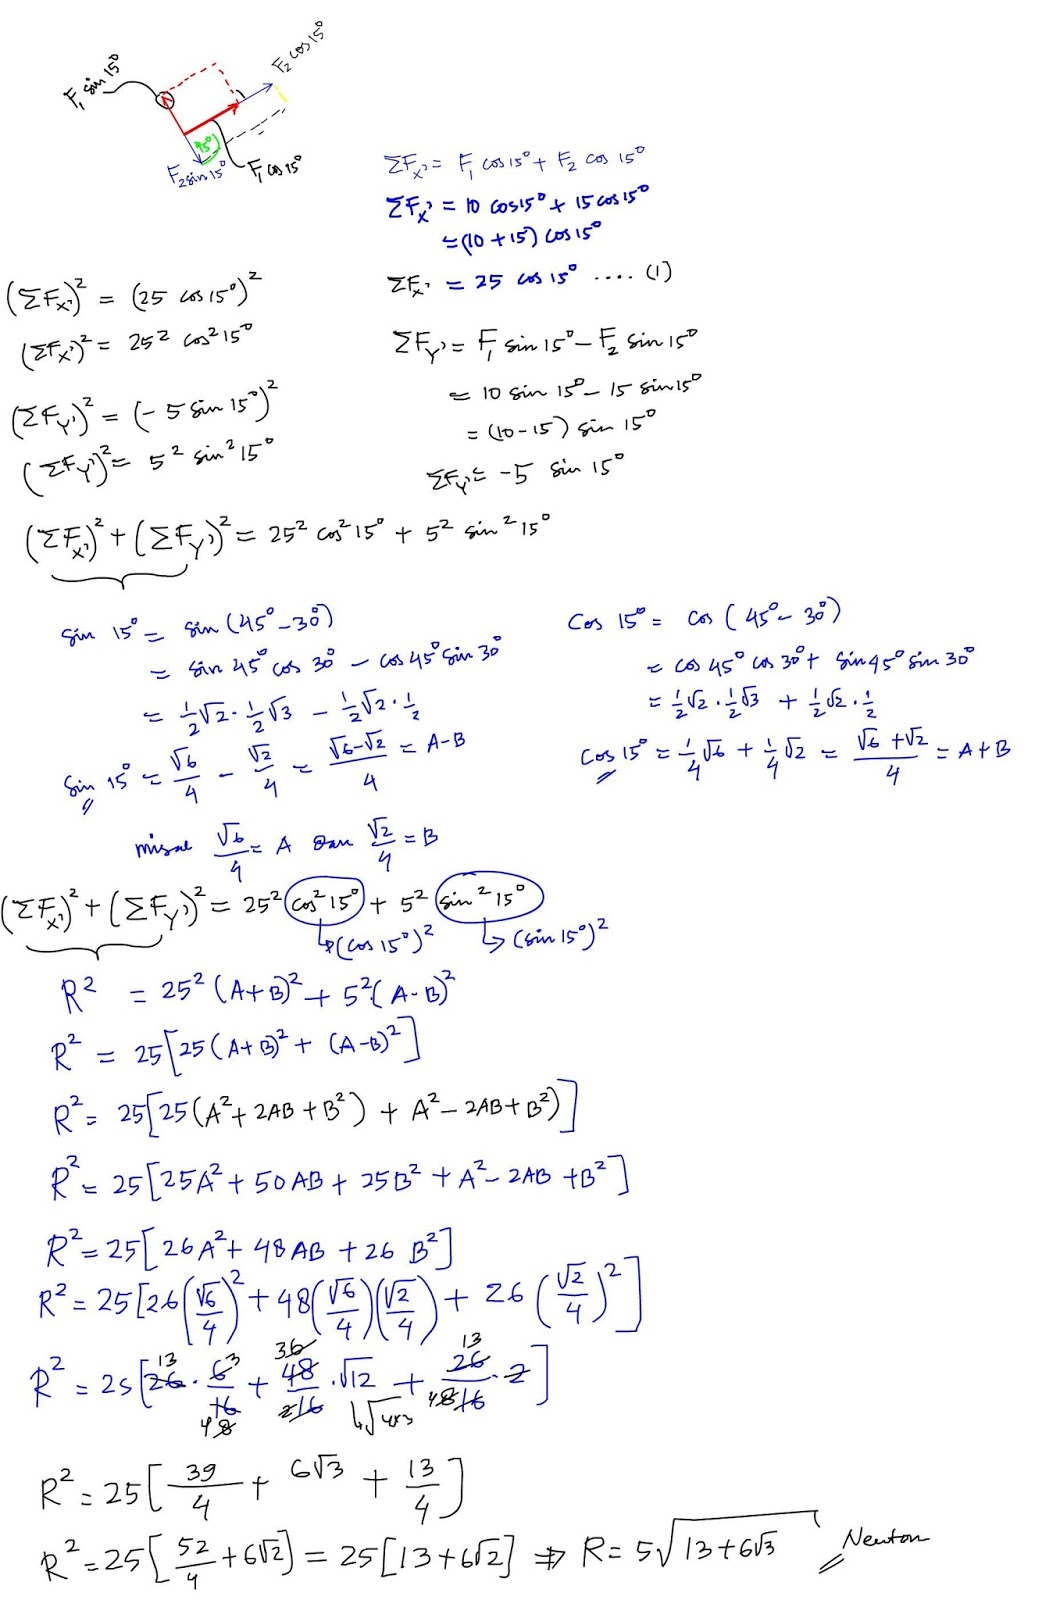 F₁ sin 15°
F₂ cos 15°
45°
F₂ sin 15°
F₁ cos 15°
ΣFx' = F₁ cos 15° + F₂ cos 15°
ΣFx' = 10 cos 15° + 15 cos 15°
= (10 + 15) cos 15°
ΣFx' = 25 cos 15° .... (1)
(ΣFx')² = (25 cos 15°)²
(ΣFx')² = 25² cos² 15°
ΣFy' = F₁ sin 15° - F₂ sin 15°
= 10 sin 15° - 15 sin 15°
= (10-15) sin 15°
ΣFy' = -5 sin 15°
(ΣFy')² = (-5 sin 15°)²
(ΣFy')² = 5² sin² 15°
(ΣFx')² + (ΣFy')² = 25² cos² 15° + 5² sin² 15°
sin 15° = sin (45° - 30°)
= sin 45° cos 30° - cos 45° sin 30°
= ½√2 · ½√3 - ½√2 · ½
sin 15° = √6/4 - √2/4 = (√6-√2)/4 = A-B
cos 15° = cos (45° - 30°)
= cos 45° cos 30° + sin 45° sin 30°
= ½√2 · ½√3 + ½√2 · ½
cos 15° = ¼√6 + ¼√2 = (√6+√2)/4 = A+B
misal √6/4 = A dan √2/4 = B
(ΣFx')² + (ΣFy')² = 25² cos² 15° + 5² sin² 15°
↳ (cos 15°)² ↳ (sin 15°)²
R² = 25² (A+B)² + 5² (A-B)²
R² = 25 [25 (A+B)² + (A-B)²]
R² = 25 [25 (A² + 2AB + B²) + A² - 2AB + B²)]
R² = 25 [25A² + 50AB + 25B² + A² - 2AB + B²]
R² = 25 [26A² + 48AB + 26 B²]
R² = 25 [26 (√6/4)² + 48 (√6/4)(√2/4) + 26 (√2/4)²]
R² = 25 [26 · 6/16 + 48/16 · √12 + 26/16 · 2]
13 3 36 13
4 8 2 ↳ √4x3 4 8
R² = 25 [39/4 + 6√3 + 13/4]
R² = 25 [52/4 + 6√2] = 25 [13 + 6√2] ⇒ R = 5√(13+6√3) Newton